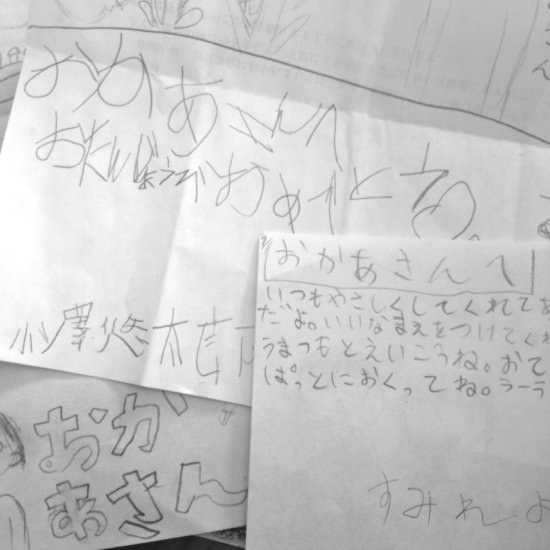 おかあさんへ
おたんじょうび おめでとう。
小澤悠太
おかあさんへ
いつもやさしくしてくれてあ
だよ。いいなまえをつけてくれ
うまつもとえいこうね。おて
ぱっとにおくってね。うーう
すみれよ
おか
あさん